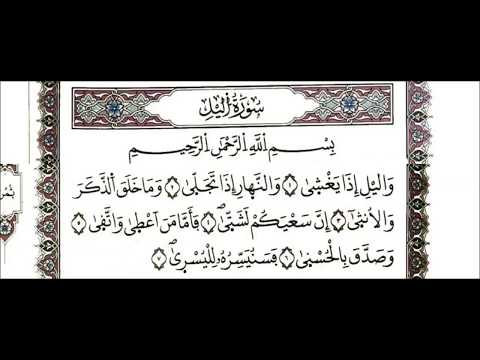 سُورَةُ الَّيْلِ
بِسْمِ اللَّهِ الرَّحْمَٰنِ الرَّحِيمِ
وَالَّيْلِ إِذَا يَغْشَىٰ ۝١ وَالنَّهَارِ إِذَا تَجَلَّىٰ ۝٢ وَمَا خَلَقَ الذَّكَرَ
وَالْأُنْثَىٰ ۝٣ إِنَّ سَعْيَكُمْ لَشَتَّىٰ ۝٤ فَأَمَّا مَنْ أَعْطَىٰ وَاتَّقَىٰ ۝٥
وَصَدَّقَ بِالْحُسْنَىٰ ۝٦ فَسَنُيَسِّرُهُ لِلْيُسْرَىٰ ۝٧